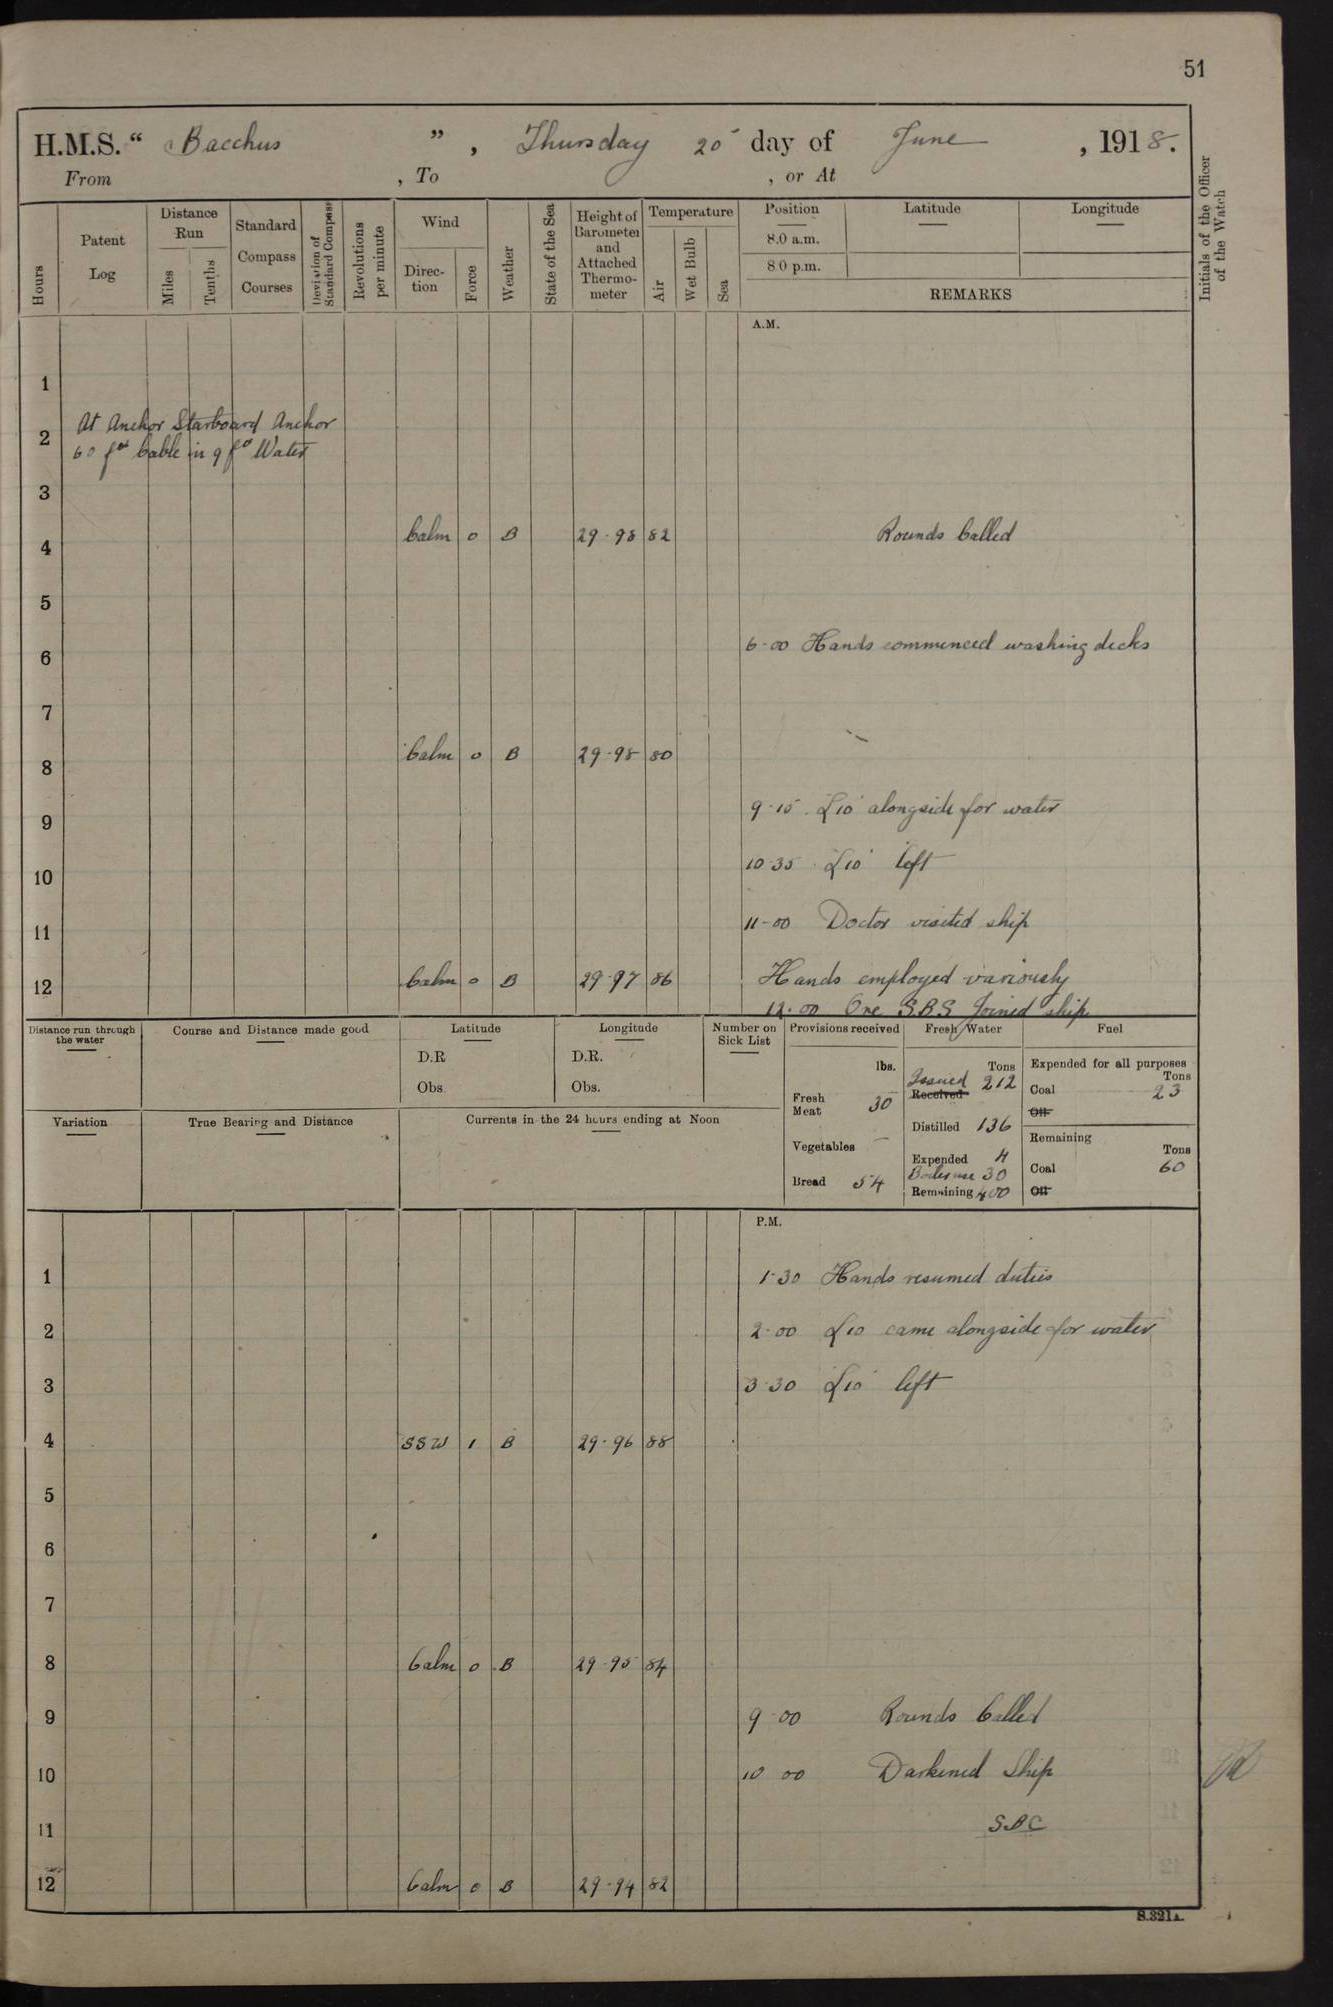 51
H.M.S. “ Bacchus ”, Thursday 20 day of June, 1918.
From , To , or At
Initials of the Officer of the Watch
Hours
Patent Log
Distance Run
Miles
Tenths
Standard Compass Courses
Deviation of Standard Compass
Revolutions per minute
Wind
Direc-tion
Force
Weather
State of the Sea
Height of Barometer and Attached Thermo-meter
Temperature
Air
Wet Bulb
Sea
Position Latitude Longitude
8.0 a.m.
8 0 p.m.
REMARKS
A.M.
1
At Anchor Starboard Anchor
2
60 fms Cable in 9 fms Water
3
4 Calm 0 B 29-98 82 Rounds Called
5
6 6-00 Hands commenced washing decks
7
8 Calm 0 B 29-98 80
9 9-15 L10 alongside for water
10 10 35 L10 left
11 11-00 Doctor visited ship
12 Calm 0 B 29-97 86 Hands employed variously
12.00 One S.B.S Joined ship
Distance run through the water
Course and Distance made good
Latitude
D.R
Obs.
Longitude
D.R.
Obs.
Number on Sick List
Provisions received
lbs.
Fresh Meat 30
Vegetables —
Bread 54
Fresh Water
Tons
Issued 212
Received
Distilled 136
Expended 4
Boiler use 30
Remaining 400
Fuel
Expended for all purposes
Tons
Coal 23
Oil
Remaining
Tons
Coal 60
Oil
Variation
True Bearing and Distance
Currents in the 24 hours ending at Noon
P.M.
1 1-30 Hands resumed duties
2 2-00 L10 came alongside for water
3 3-30 L10 left
4 SSW 1 B 29-96 88
5
6
7
8 Calm 0 B 29-95 84
9 9-00 Rounds Called
10 10 00 Darkened Ship
11 SBC
12 Calm 0 B 29-94 82
S.321A.